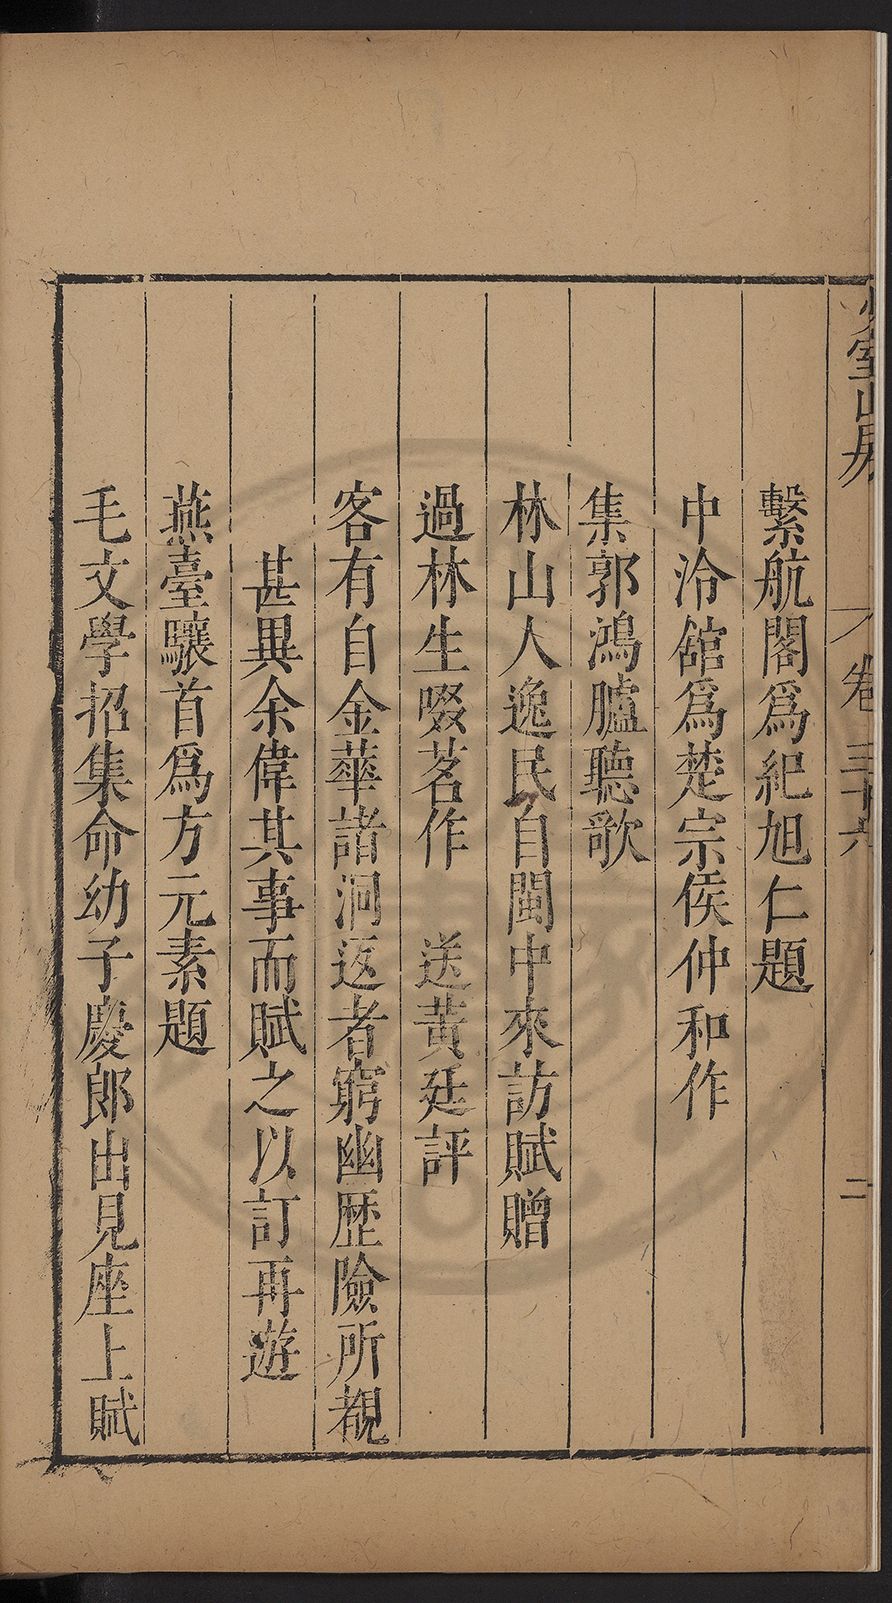 少室山房　卷三十六　二
繫航閣爲紀旭仁題
中泠舘爲楚宗侯仲和作
集郭鴻臚聽歌
林山人逸民自閩中來訪賦贈
過林生啜茗作　送黃廷評
客有自金華諸洞返者窮幽歴險所覩
甚異余偉其事而賦之以訂再遊
燕臺驤首爲方元素題
毛文學招集命幼子慶郎出見座上賦